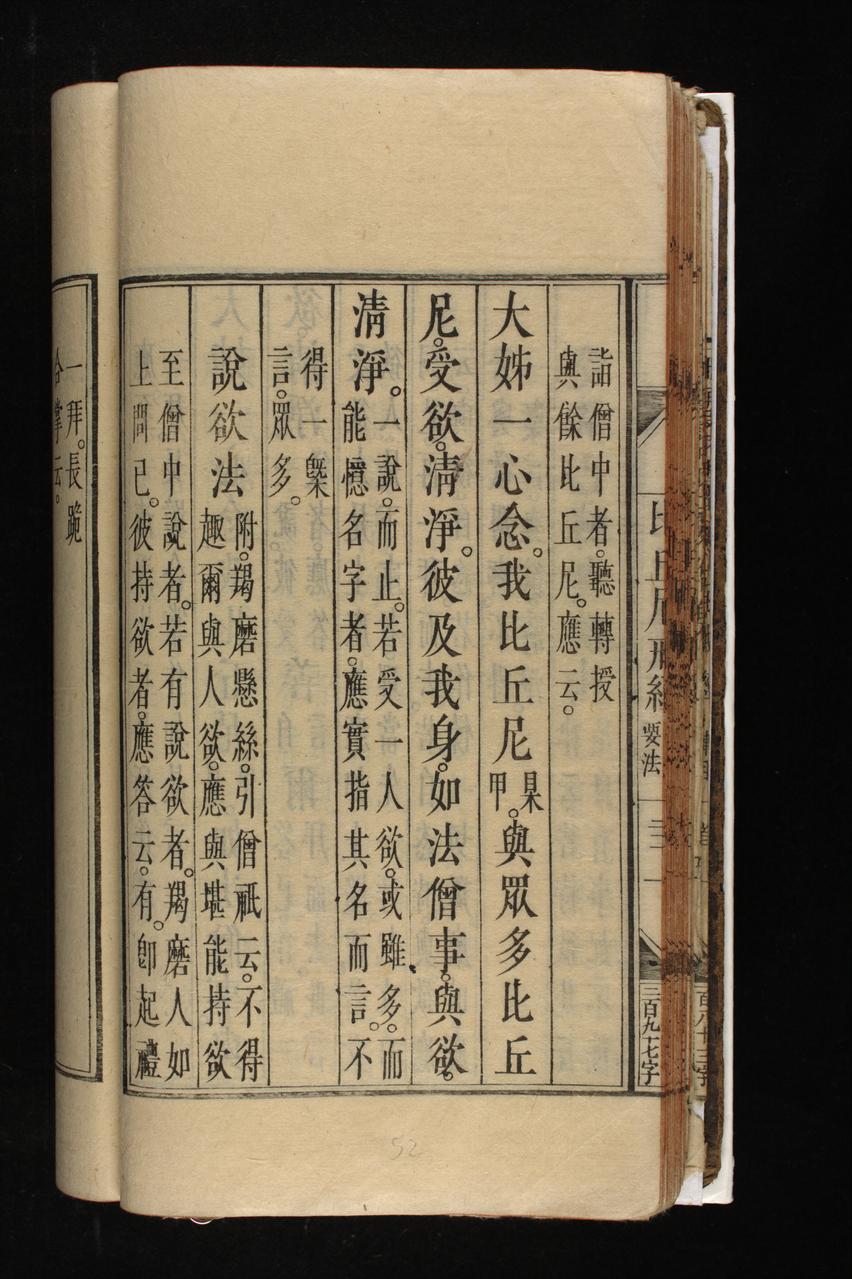 比丘尼
要法
詣僧中者。聽轉授
與餘比丘尼。應云。
大姊一心念。我比丘尼某甲。與眾多比丘
尼。受欲。清淨。彼及我身。如法僧事。與欲。
清淨。一說。而止。若受一人欲。或雖多。而
能憶名字者。應實指其名而言。不
得一槩
言。眾多。
說欲法 附。羯磨懸絲。引僧祇云。不得
趣爾與人欲。應與堪能持欲
至僧中說者。若有說欲者。羯磨人如
上問已。彼持欲者。應答云。有。卽起禮
一拜。長跪
合掌云。